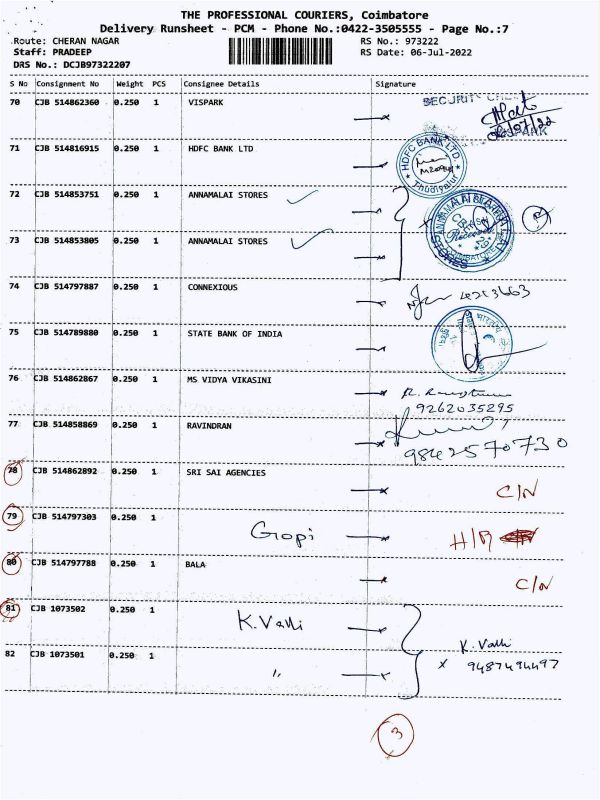 THE PROFESSIONAL COURIERS, Coimbatore
Delivery Runsheet - PCM - Phone No.:0422-3505555 - Page No.:7
Route: CHERAN NAGAR RS No.: 973222
Staff: PRADEEP RS Date: 06-Jul-2022
DRS No.: DCJB97322207
S No Consignment No Weight PCS Consignee Details Signature
70 CJB 514862360 0.250 1 VISPARK
71 CJB 514816915 0.250 1 HDFC BANK LTD HDFC BANK LTD. Thudiyalur
72 CJB 514853751 0.250 1 ANNAMALAI STORES
73 CJB 514853805 0.250 1 ANNAMALAI STORES
74 CJB 514797887 0.250 1 CONNEXIOUS
75 CJB 514789880 0.250 1 STATE BANK OF INDIA
76 CJB 514862867 0.250 1 MS VIDYA VIKASINI
9262035295
77 CJB 514858869 0.250 1 RAVINDRAN
9842570730
78 CJB 514862892 0.250 1 SRI SAI AGENCIES C/N
79 CJB 514797303 0.250 1 Gopi
80 CJB 514797788 0.250 1 BALA C/N
81 CJB 1073502 0.250 1 K.Valli
K.Valli
82 CJB 1073501 0.250 1 〃 x 9487494497
3